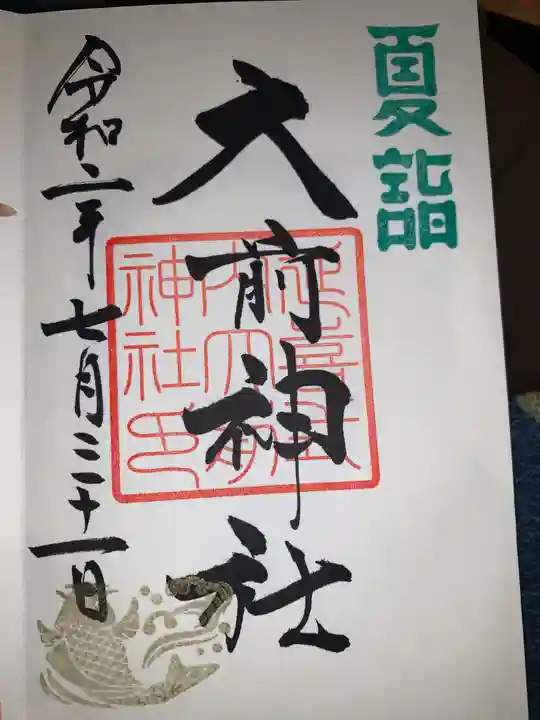 夏詣
大前神社
延喜式
内大前
神社印
令和二年七月三十一日